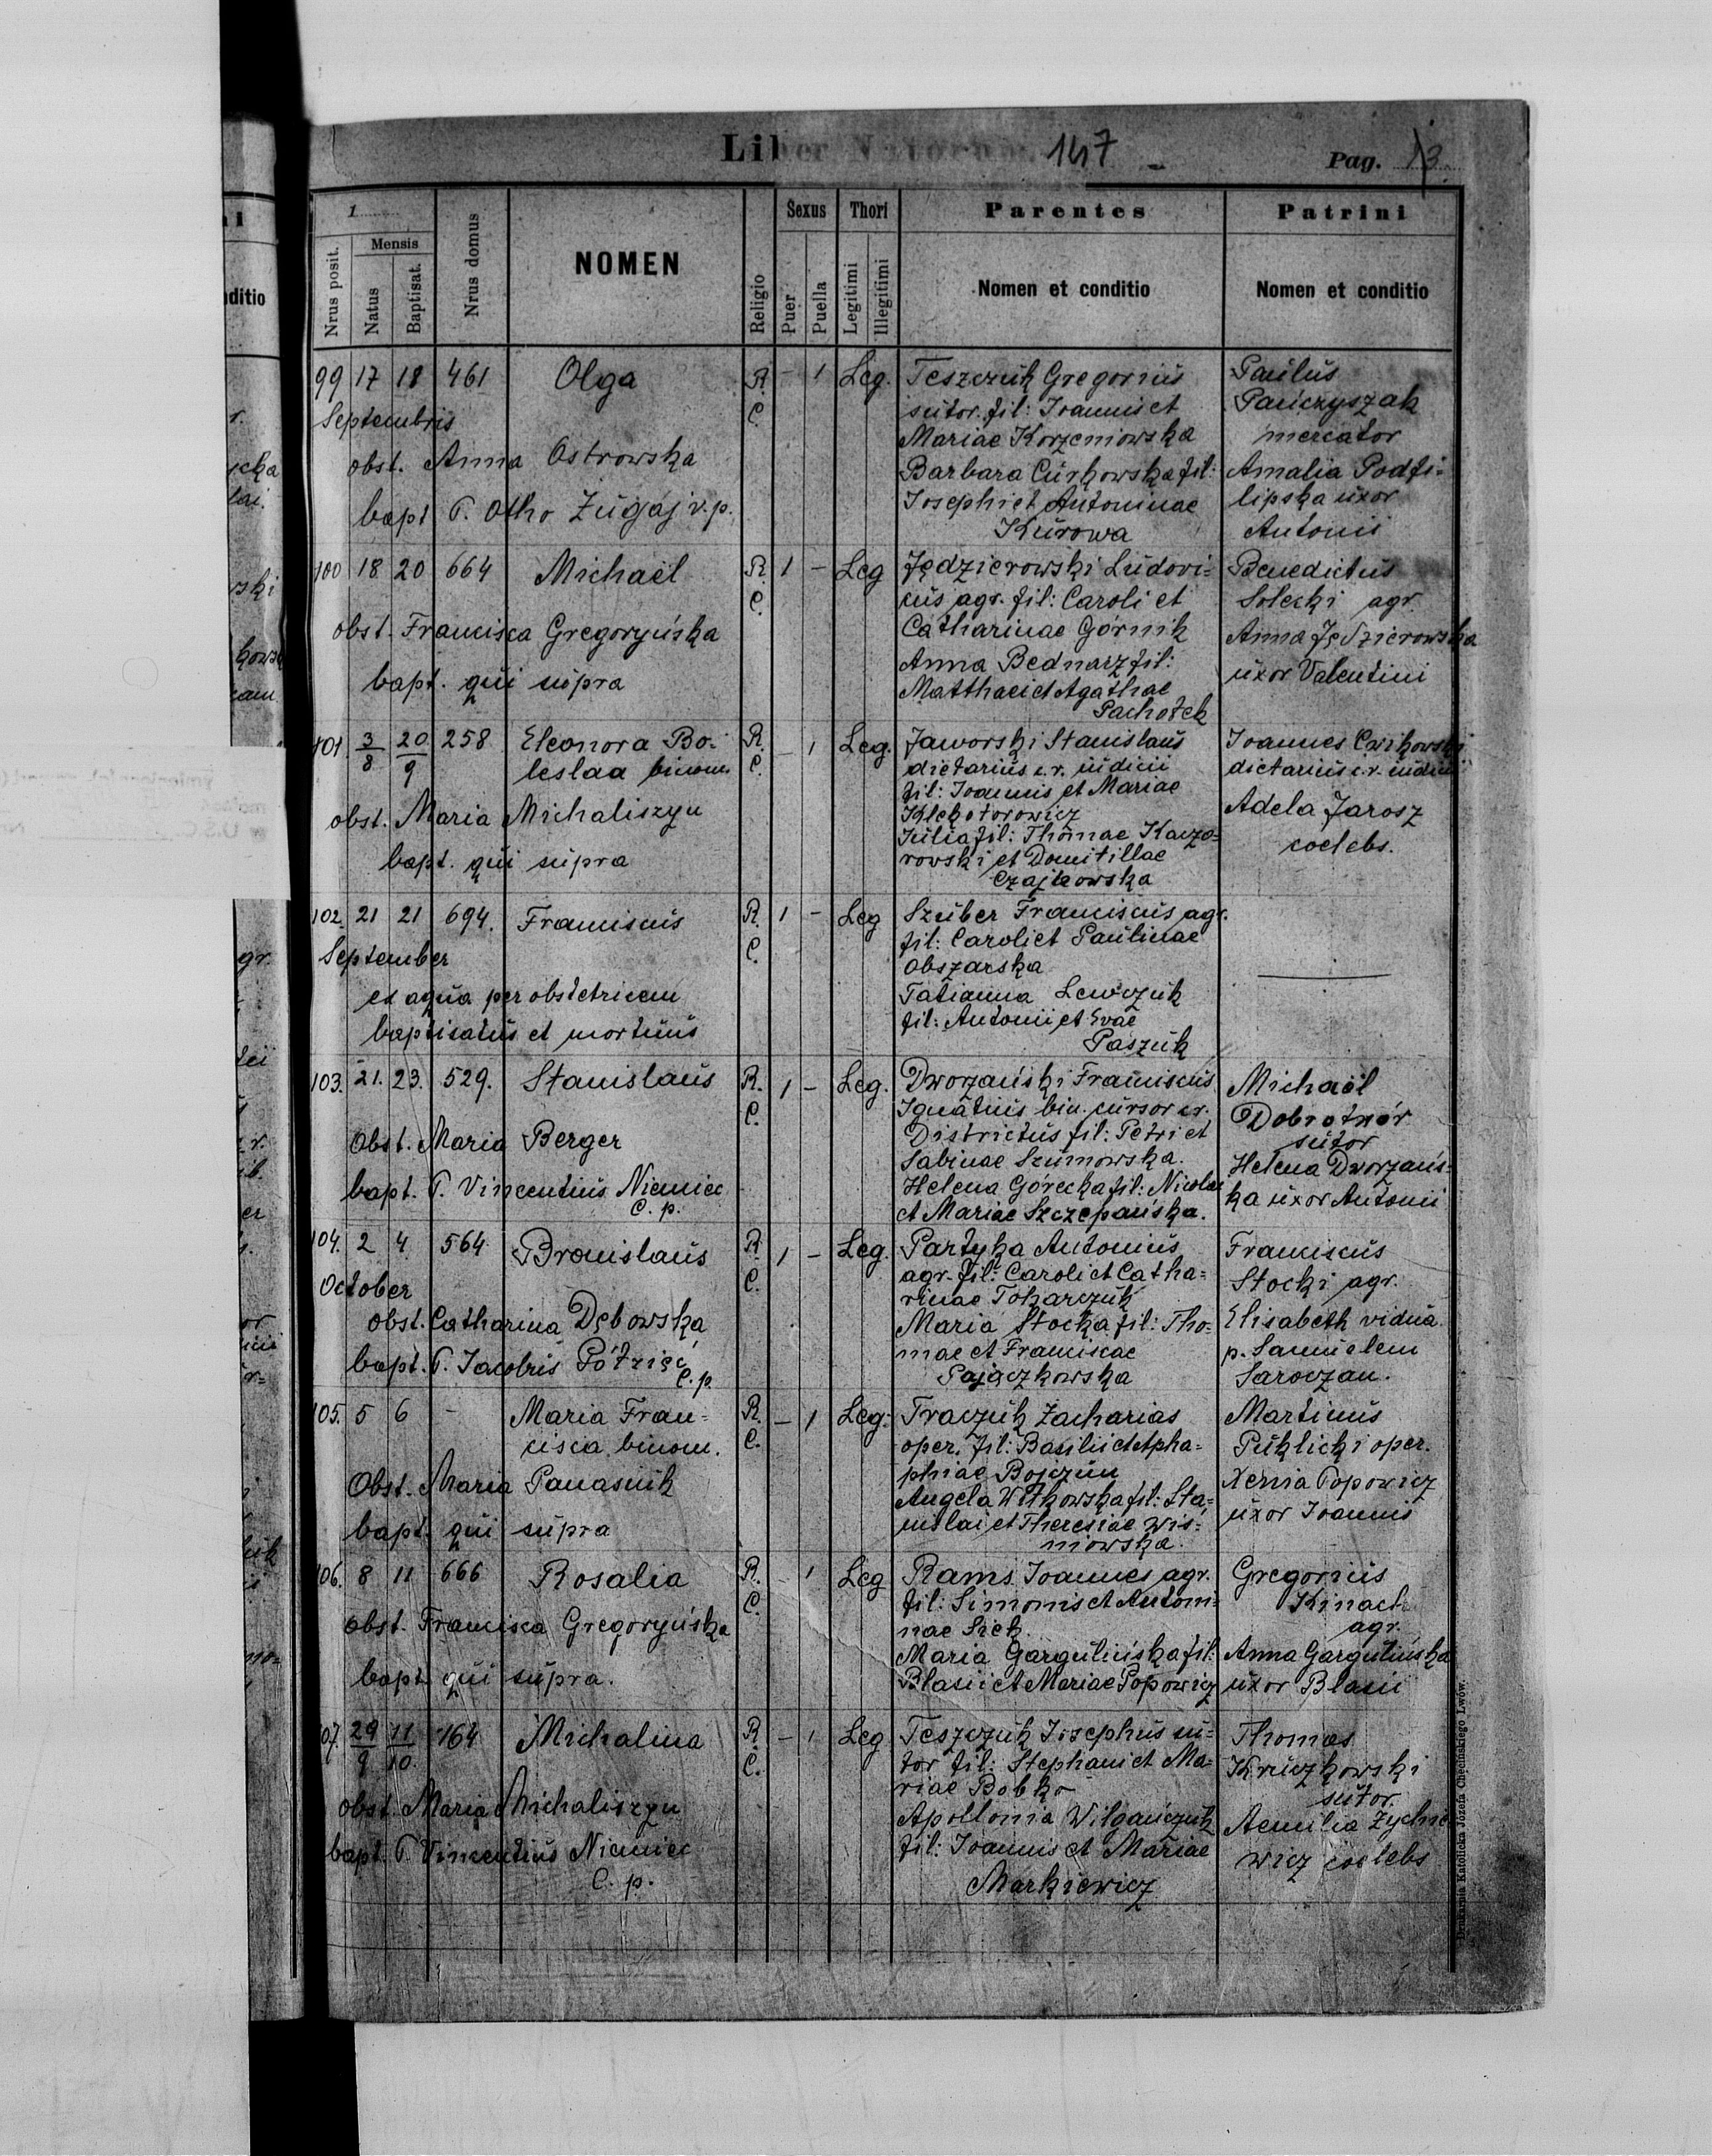 Liber Natorum 147 Pag. 13.
1
Nrus posit.
Mensis
Natus
Baptisat.
Nrus domus
NOMEN
Religio
Sexus
Puer
Puella
Thori
Legitimi
Illegitimi
Parentes
Nomen et conditio
Patrini
Nomen et conditio
99 17 18 461 Olga R. C. - 1 Leg.
Septembris
obst. Anna Ostrowska
bapt P. Otho Zugaj v. p.
Teszczuk Gregorius
sutor. fil: Joannis et
Mariae Korzeniowska
Barbara Curkowska fil:
Josephi et Antoninae
Kurowa
Paulus
Panczyszak
mercator
Amalia Podfi-
lipska uxor
Antonii
100 18 20 664 Michaël R. C. 1 - Leg
obst. Francisca Gregoryńska
bapt. qui supra
Jędzierowski Ludovi-
cus agr. fil: Caroli et
Catharinae Górnik
Anna Bednarz fil:
Matthaei et Agathae
Pachołek
Benedictus
Solecki agr.
Anna Jędzierowska
uxor Valentini
101 3/8 20/9 258 Eleonora Bo- R. C. - 1 Leg.
leslaa binom.
obst. Maria Michaliszyn
bapt. qui supra
Jaworski Stanislaus
dietarius c. r. iudicii
fil: Joannis et Mariae
Klekotorowicz
Julia fil: Thomae Kaczo-
rowski et Domitillae
Czajkowska
Joannes Cwikowski
dietarius c. r. iudicii
Adela Jarosz
coelebs.
102. 21 21 694. Franciscus R. C. 1 - Leg
September
ex aqua per obstetricem
baptisatus et mortuus
Szuber Franciscus agr.
fil: Caroli et Paulinae
Obszarska
Tatianna Lewczuk
fil: Antonii et Evae
Paszuk
103. 21. 23. 529. Stanislaus R. C. 1 - Leg.
Obst. Maria Berger
bapt. P. Vincentius Niemiec
C. p.
Dworzański Franciscus
Ignatius bin. cursor c. r.
Districtus fil: Petri et
Sabinae Szumowska.
Helena Górecka fil: Nicolai
et Mariae Szczepańska.
Michaël
Dobrotwór
sutor
Helena Dworzańs-
ka uxor Antonii
104. 2 4. 564 Bronislaus R. C. 1 - Leg.
October
obst. Catharina Dębowska
bapt. P. Jacobus Półzięć
C. p.
Partyka Antonius
agr. fil: Caroli et Catha-
rinae Tokarczuk
Maria Stocka fil: Tho-
mae et Franciscae
Pajączkowska
Franciscus
Stocki agr.
Elisabeth vidua
p. Samuelem
Saroczan.
105. 5 6 - Maria Fran- R. C. - 1 Leg.
cisca binom.
Obst. Maria Panasiuk
bapt. qui supra
Traczuk Zacharias
oper. fil: Basilii et Apha-
phiae Bojczun
Angela Witkowska fil: Sta-
nislai et Theresiae Wis-
niowska.
Martinus
Puklicki oper.
Xenia Popowicz
uxor Joannis
106. 8 11 666 Rosalia R. C. - 1 Leg
obst. Francisca Gregoryńska
bapt. qui supra.
Rams Joannes agr.
fil: Simonis et Antoni-
nae Sick.
Maria Gargulińska fil:
Blasii et Mariae Popowicz
Gregorius
Kinach
agr.
Anna Gargulińska
uxor Blasii
107. 29/9 11/10 164 Michalina R. C. - 1 Leg
obst. Maria Michaliszyn
bapt. P. Vincentius Niemiec
C. p.
Teszczuk Josephus su-
tor fil: Stephani et Ma-
riae Bobko
Apollonia Wilgańczuk
fil: Joannis et Mariae
Markiewicz
Thomas
Kruczkowski
sutor.
Aemilia Zychie-
wicz coelebs
Drukarnia Katolicka Józefa Chęcińskiego Lwów.